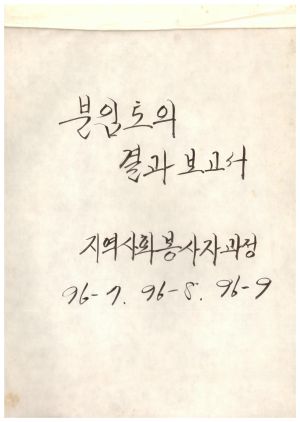 분임토의
결과보고서
지역사회봉사자과정
96-7. 96-8. 96-9